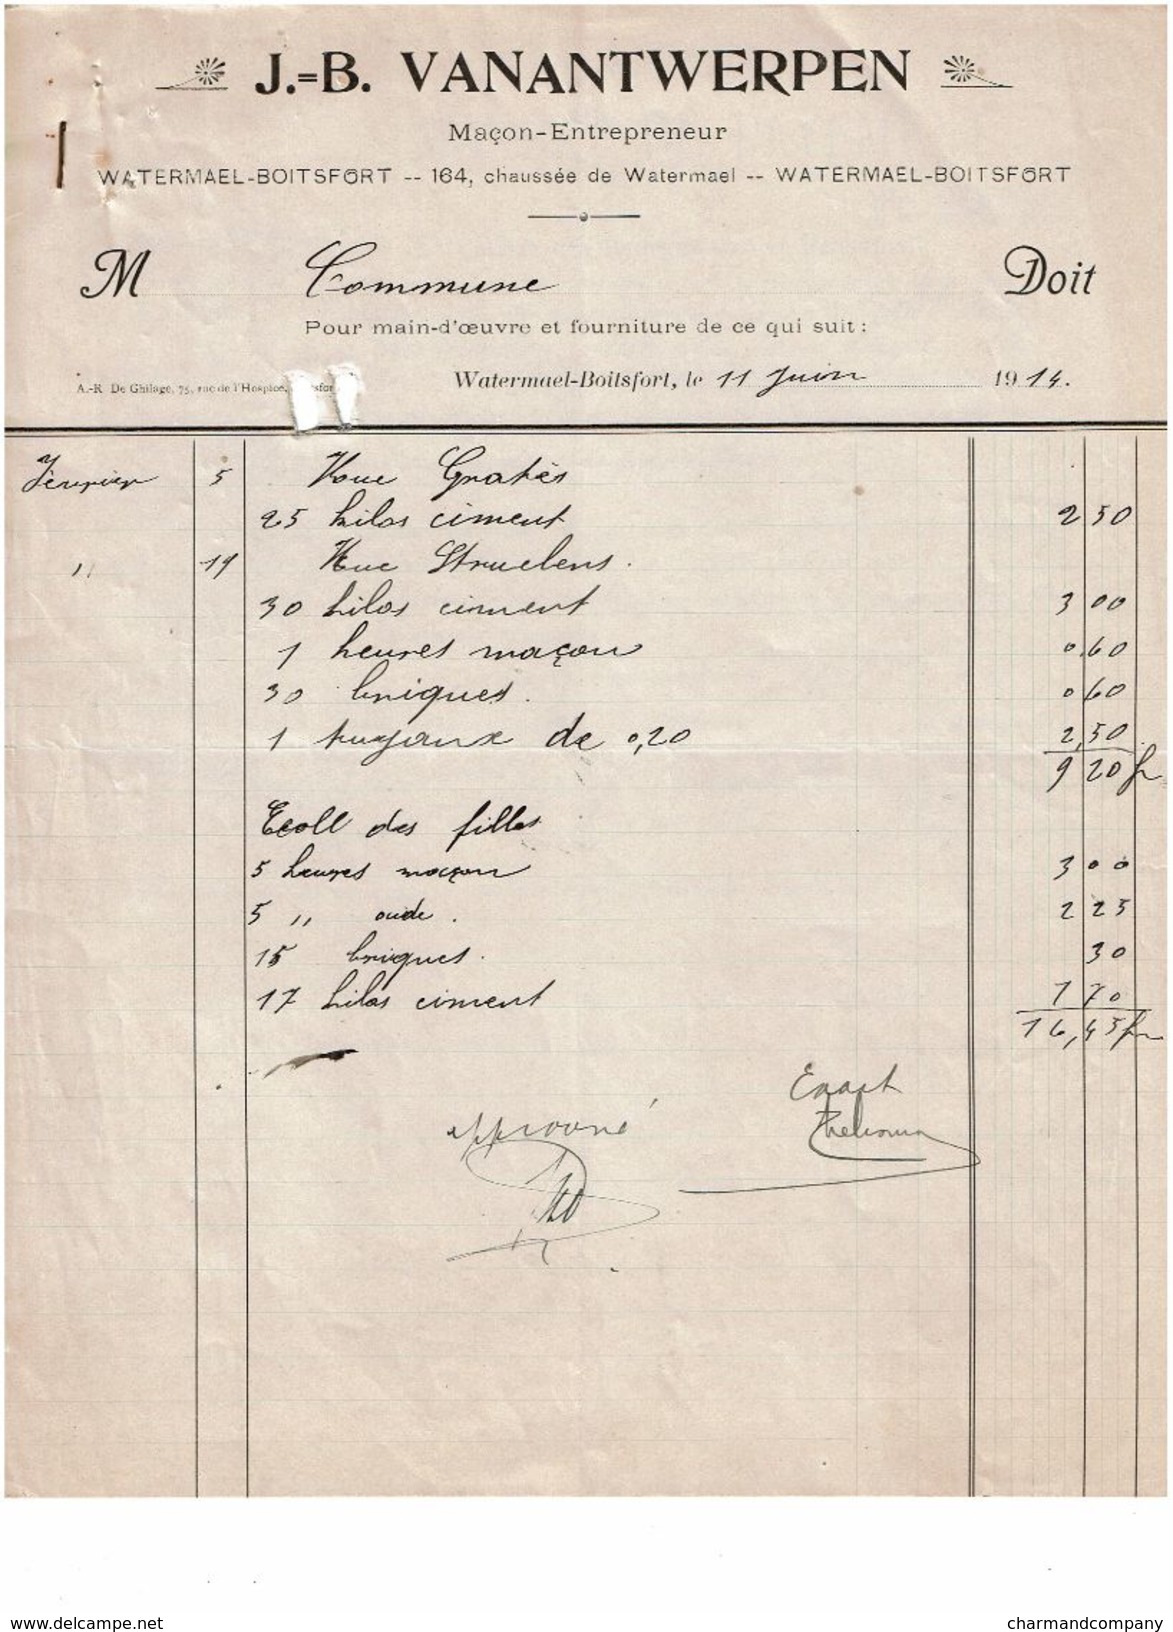 J.=B. VANANTWERPEN
Maçon-Entrepreneur
WATERMAEL-BOITSFORT -- 164, chaussée de Watermael -- WATERMAEL-BOITSFORT
M Commune Doit
Pour main-d'œuvre et fourniture de ce qui suit :
A.-R. De Ghilage, 75, rue de l'Hospice,
Watermael-Boitsfort, le 11 Juin 1914.
Février 5 Rue Gratès
25 kilos ciment 2 50
" 19 Rue Struelens.
30 kilos ciment 3 00
1 heures maçon 0,60
30 briques. 0 60
1 tuyaux de 0,20 2,50
9 20 fr
Ecoll des filles
5 heures maçon 3 00
5 " aude. 2 25
15 briques. 30
17 kilos ciment 1 70
16,45 fr
Exact
approuvé
www.delcampe.net
charmandcompany